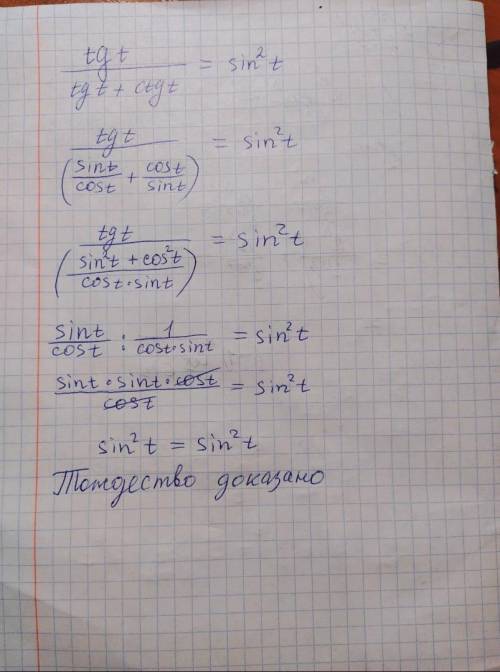 tg t / (tg t + ctg t) = sin² t
tg t / (sin t / cos t + cos t / sin t) = sin² t
tg t / ((sin² t + cos² t) / (cos t · sin t)) = sin² t
sin t / cos t : 1 / (cos t · sin t) = sin² t
sin t · sin t · cos t / cos t = sin² t
sin² t = sin² t
Тождество доказано